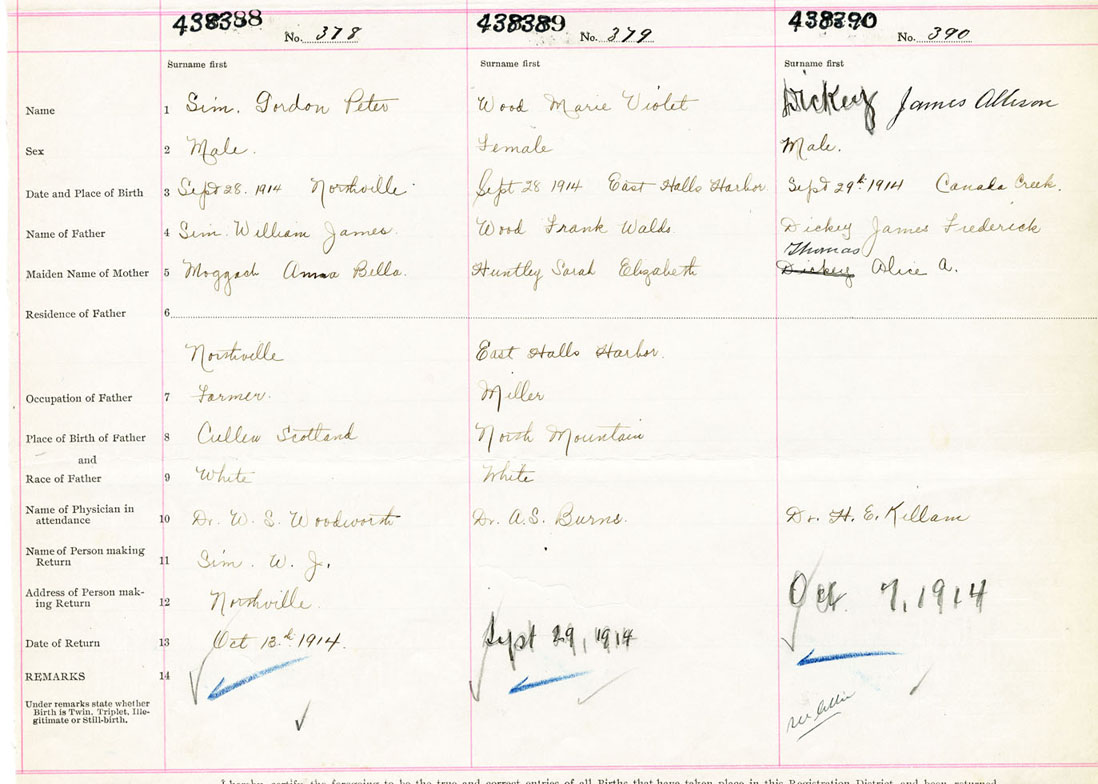 438388 No. 378 438389 No. 379 438390 No. 390
Surname first Surname first Surname first
Name 1 Sim. Gordon Peter Wood Marie Violet Dickey James Allison
Sex 2 Male. Female Male.
Date and Place of Birth 3 Sept 28. 1914 Northville Sept 28 1914 East Halls Harbor Sept 29th 1914 Canada Creek.
Name of Father 4 Sim. William James. Wood Frank Waldo. Dickey James Frederick
Thomas
Maiden Name of Mother 5 Moggach Anna Bella. Huntley Sarah Elizabeth Dickey Alice A.
Residence of Father 6
Northville East Halls Harbor.
Occupation of Father 7 Farmer. Miller
Place of Birth of Father 8 Cullen Scotland North Mountain
and
Race of Father 9 White White
Name of Physician in
attendance 10 Dr. W. S. Woodworth Dr. A.S. Burns. Dr. H. E. Killam
Name of Person making
Return 11 Sim. W. J.
Address of Person mak-
ing Return 12 Northville. Oct. 7, 1914
Date of Return 13 Oct 13th 1914. Sept 29, 1914
REMARKS 14
Under remarks state whether
Birth is Twin, Triplet, Ille-
gitimate or Still-birth.
I hereby certify the foregoing to be the true and correct entries of all Births that have taken place in this Registration District and been returned